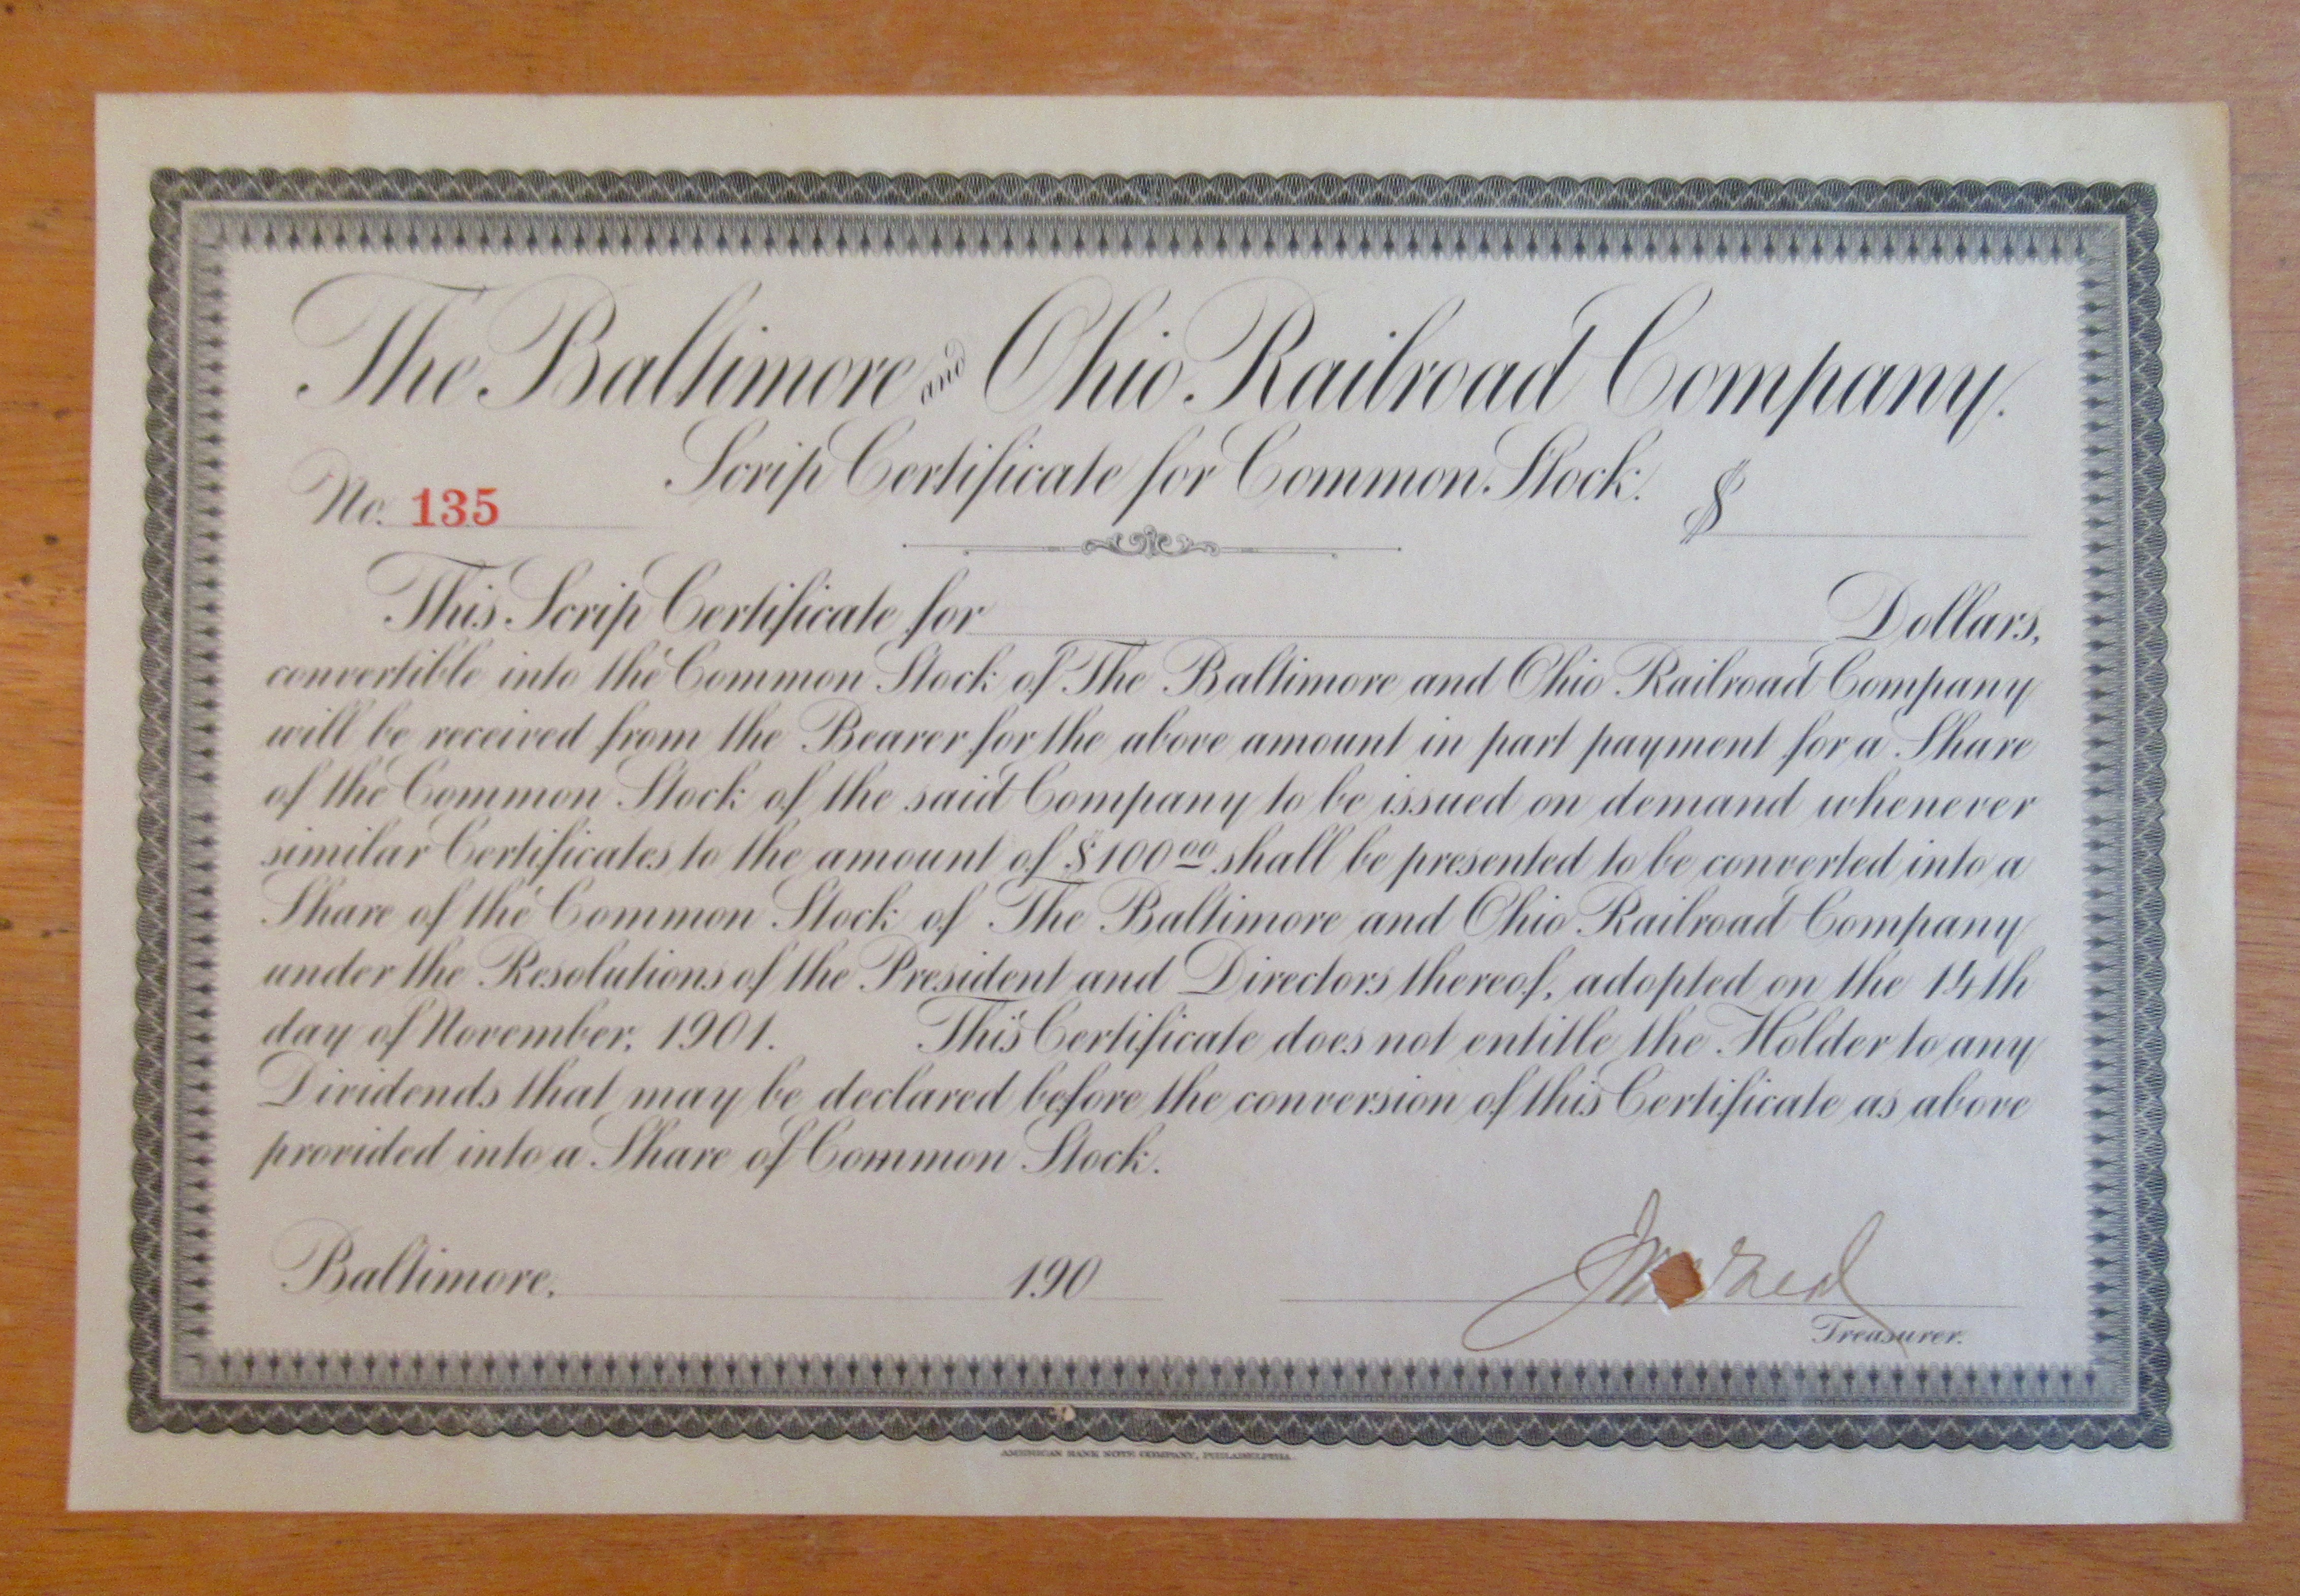 The Baltimore and Ohio Railroad Company.
Scrip Certificate for Common Stock.
No. 135 $
This Scrip Certificate for Dollars,
convertible into the Common Stock of The Baltimore and Ohio Railroad Company
will be received from the Bearer for the above amount in part payment for a Share
of the Common Stock of the said Company to be issued on demand whenever
similar Certificates to the amount of $100 00 shall be presented to be converted into a
Share of the Common Stock of The Baltimore and Ohio Railroad Company
under the Resolutions of the President and Directors thereof, adopted on the 14th
day of November, 1901. This Certificate does not entitle the Holder to any
Dividends that may be declared before the conversion of this Certificate as above
provided into a Share of Common Stock.
Baltimore, 190
Treasurer.
AMERICAN BANK NOTE COMPANY, PHILADELPHIA.